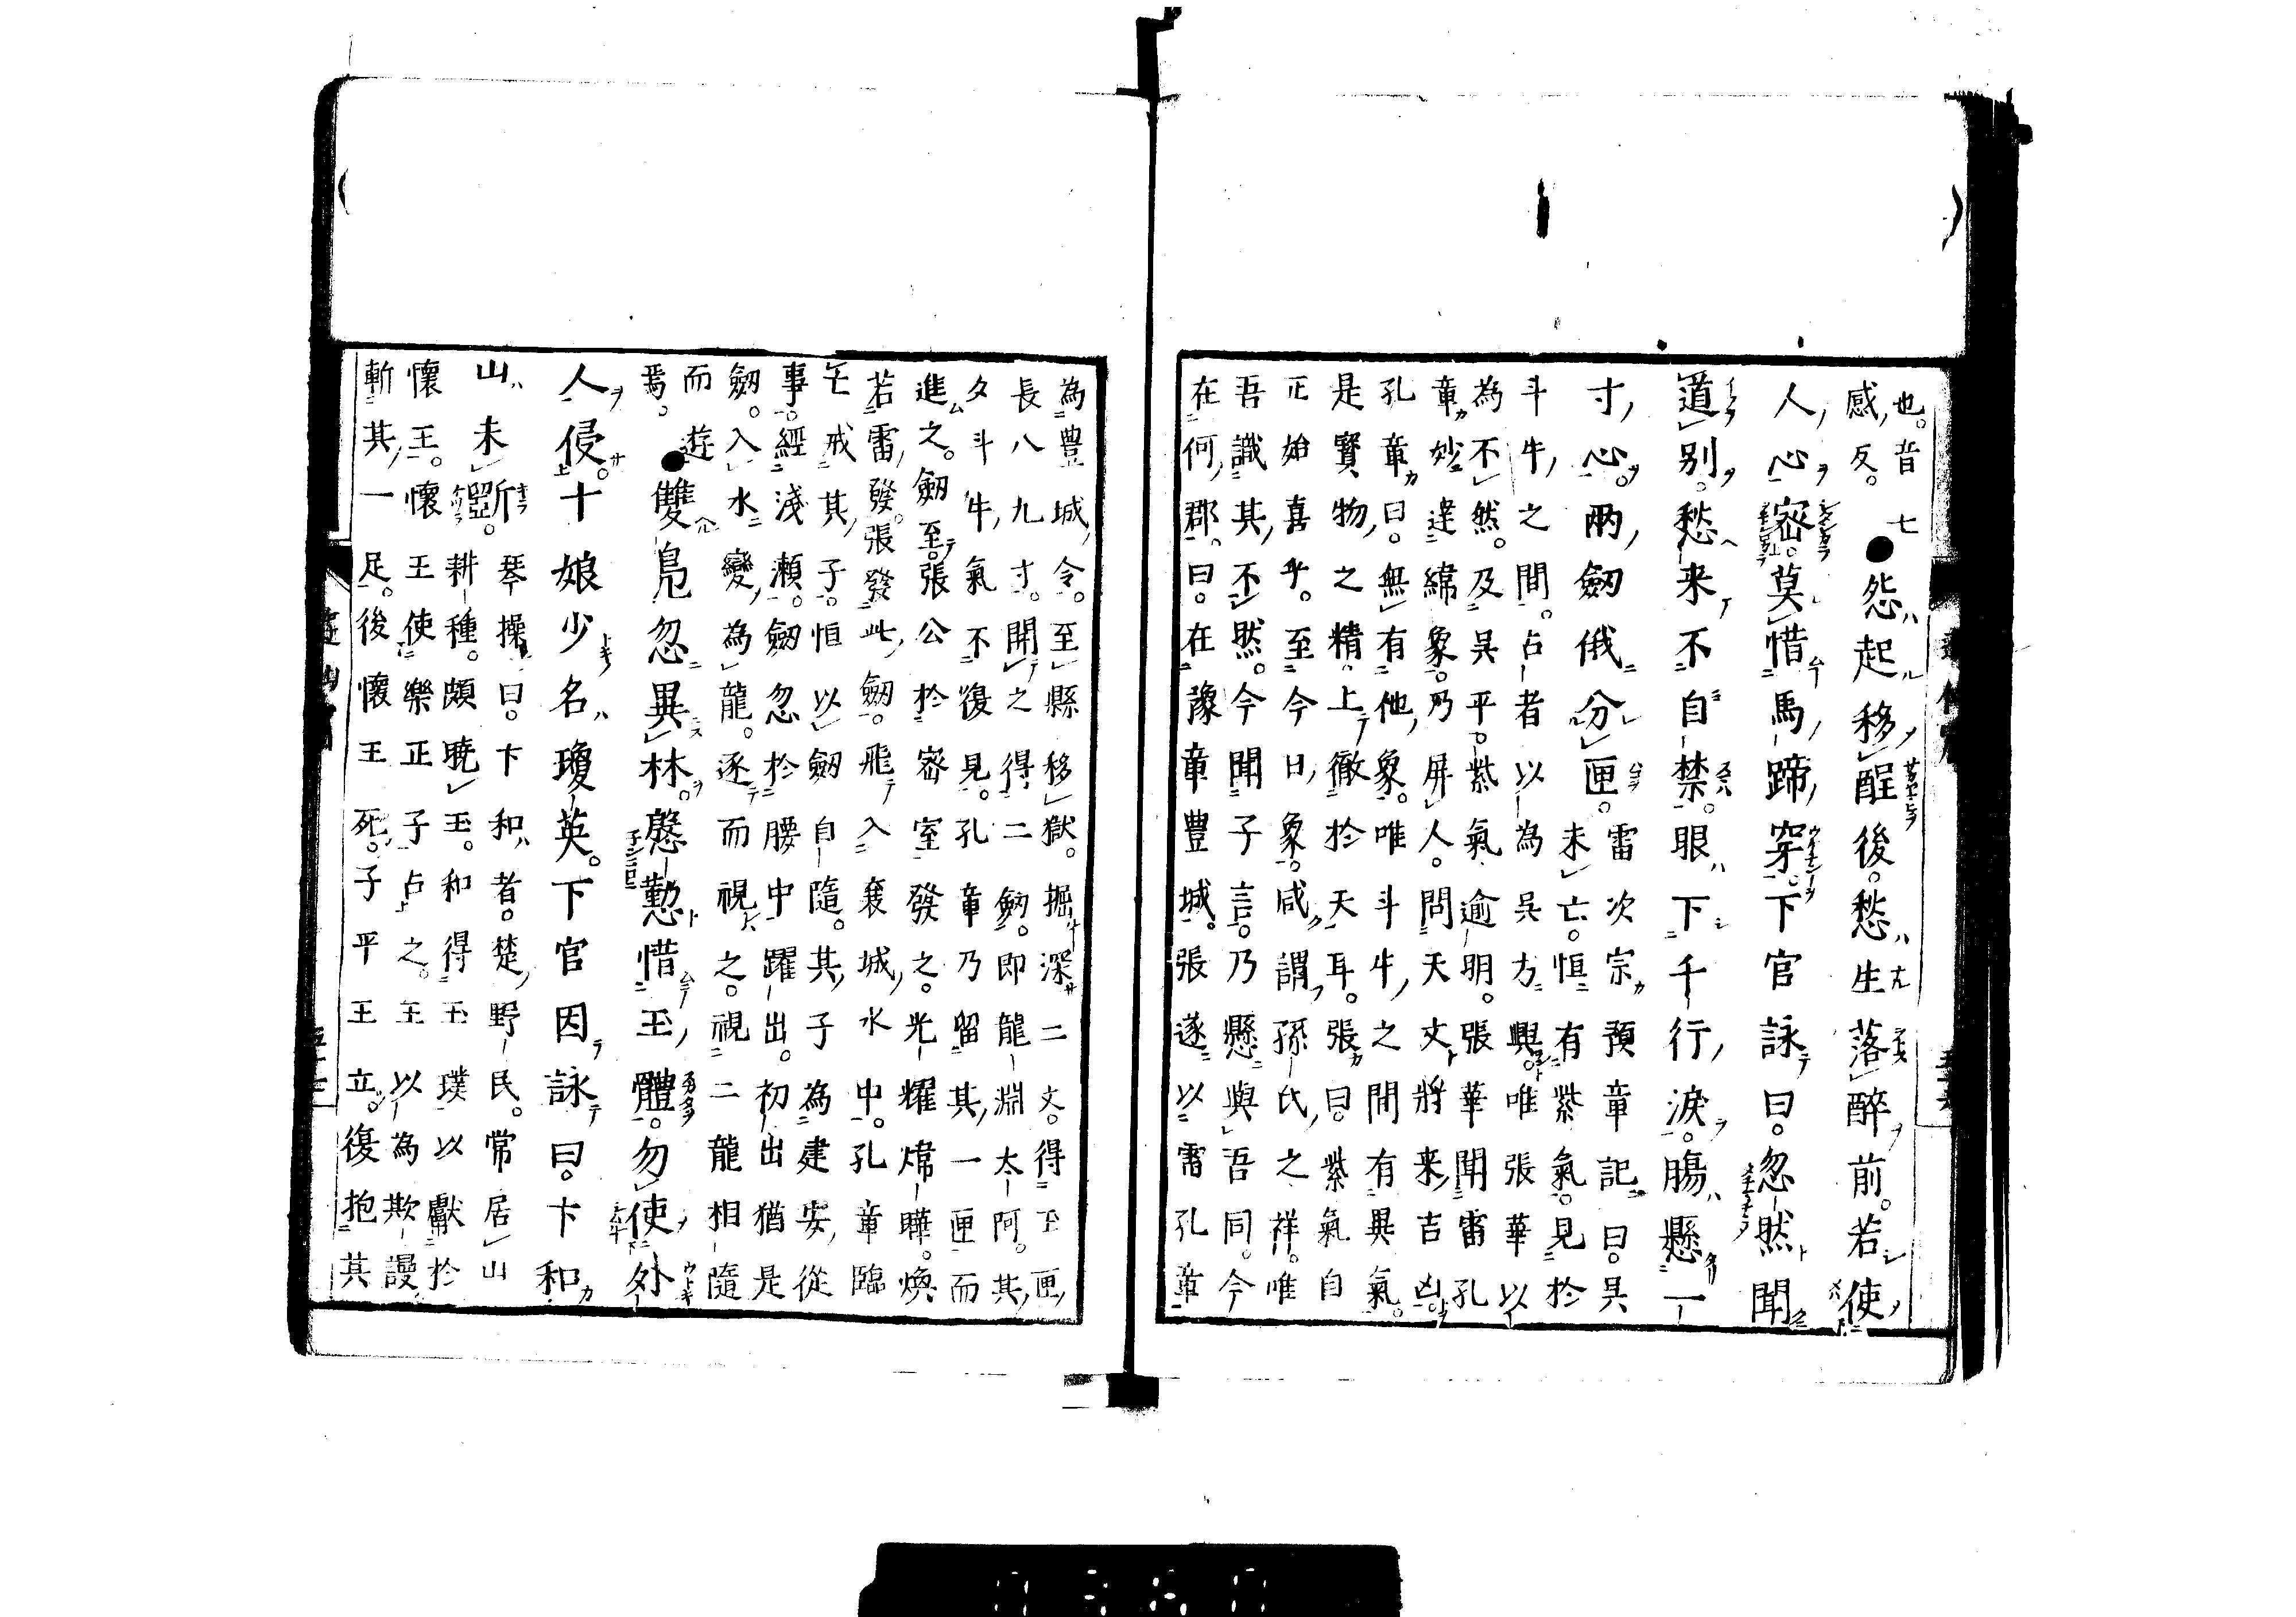 也。昔七
感反。
●怨起移醒後。愁生落醉前。若使
人心密。莫惜馬蹄穿。下官詠曰。忽然聞
道別。愁来不自禁。眼下千行淚。腸懸一
寸心。兩劒俄分匣。
雷次宗豫章記曰。吳
未亡。恒有紫氣。見於
斗牛之間。占者以為吳方興。唯張華以
為不然。及吳平。紫氣逾明。張華聞雷孔
章妙達緯象。乃屏人。問天文將来吉凶。
孔章曰。無有他象。唯斗牛之間有異氣。
是寳物之精。上徹於天耳。張曰。紫氣自
正始喜乎。至今日。象。咸謂孫氏之祥。唯
吾識其不然。今聞子言。乃懸與吾同。今
在何郡。曰。在豫章豐城。張遂以雷孔章
為豐城令。至縣移獄。掘深二丈。得玉匣
長八九寸。開之得二劒。即龍淵太阿。其
夕斗牛氣不復見。孔章乃留其一匣而
進之。劒至。張公於密室發之。光耀煒曄。煥
若雷發。張發此劒。飛入襄城水中。孔章臨
亡戒其子。恒以劒自隨。其子為建安從
事。經淺瀬。劒忽於腰中躍出。初出猶是
劒。入水變為龍。逐而視之。視二龍相隨
而遊
焉。
●雙鳧忽異林。慇懃惜玉體。勿使外
人侵。十娘少名瓊英。下官因詠曰。卞和
山未斵。
琴操曰。卞和者。楚野民。常居山
耕種。頗曉玉。和得玉璞以獻於
懷王。懷王使樂正子占之。王以為欺謾
斬其一足。後懷王死。子平王立。復抱其